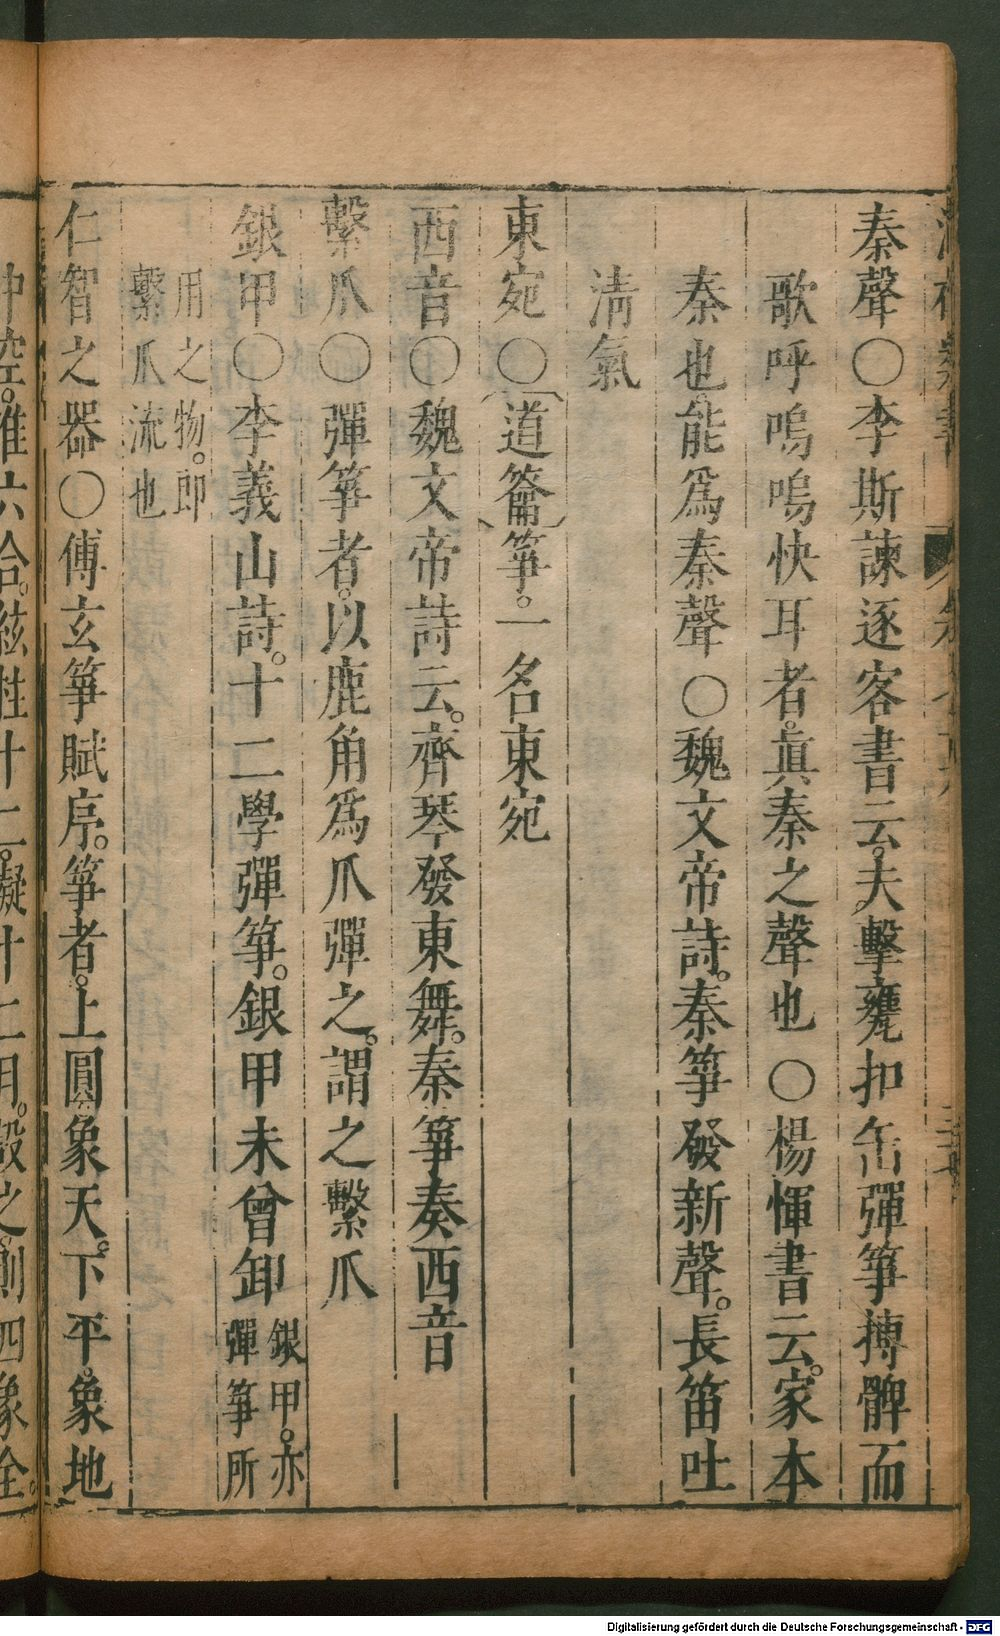 秦聲○李斯諫逐客書云。夫擊甕扣缶彈箏搏髀而
歌呼嗚嗚快耳者。眞秦之聲也○楊惲書云。家本
秦也。能爲秦聲○魏文帝詩。秦箏發新聲。長笛吐
淸氣
東宛○〔道簫〕箏。一名東宛
西音○魏文帝詩云。齊琴發東舞。秦箏奏西音
繫爪○彈箏者。以鹿角爲爪彈之。謂之繫爪
銀甲○李義山詩。十二學彈箏。銀甲未曾卸
銀甲。亦
彈箏所
用之物。即
繫爪流也
仁智之器○傅玄箏賦序。箏者。上圓象天。下平。象地
中空。准六合。絃柱十二。擬十二月。設之則四象全。
Digitalisierung gefördert durch die Deutsche Forschungsgemeinschaft - DFG